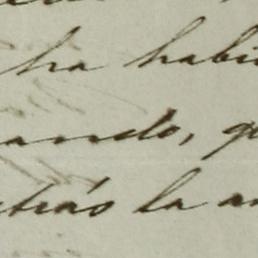 ha habi
ando, q
trás la a